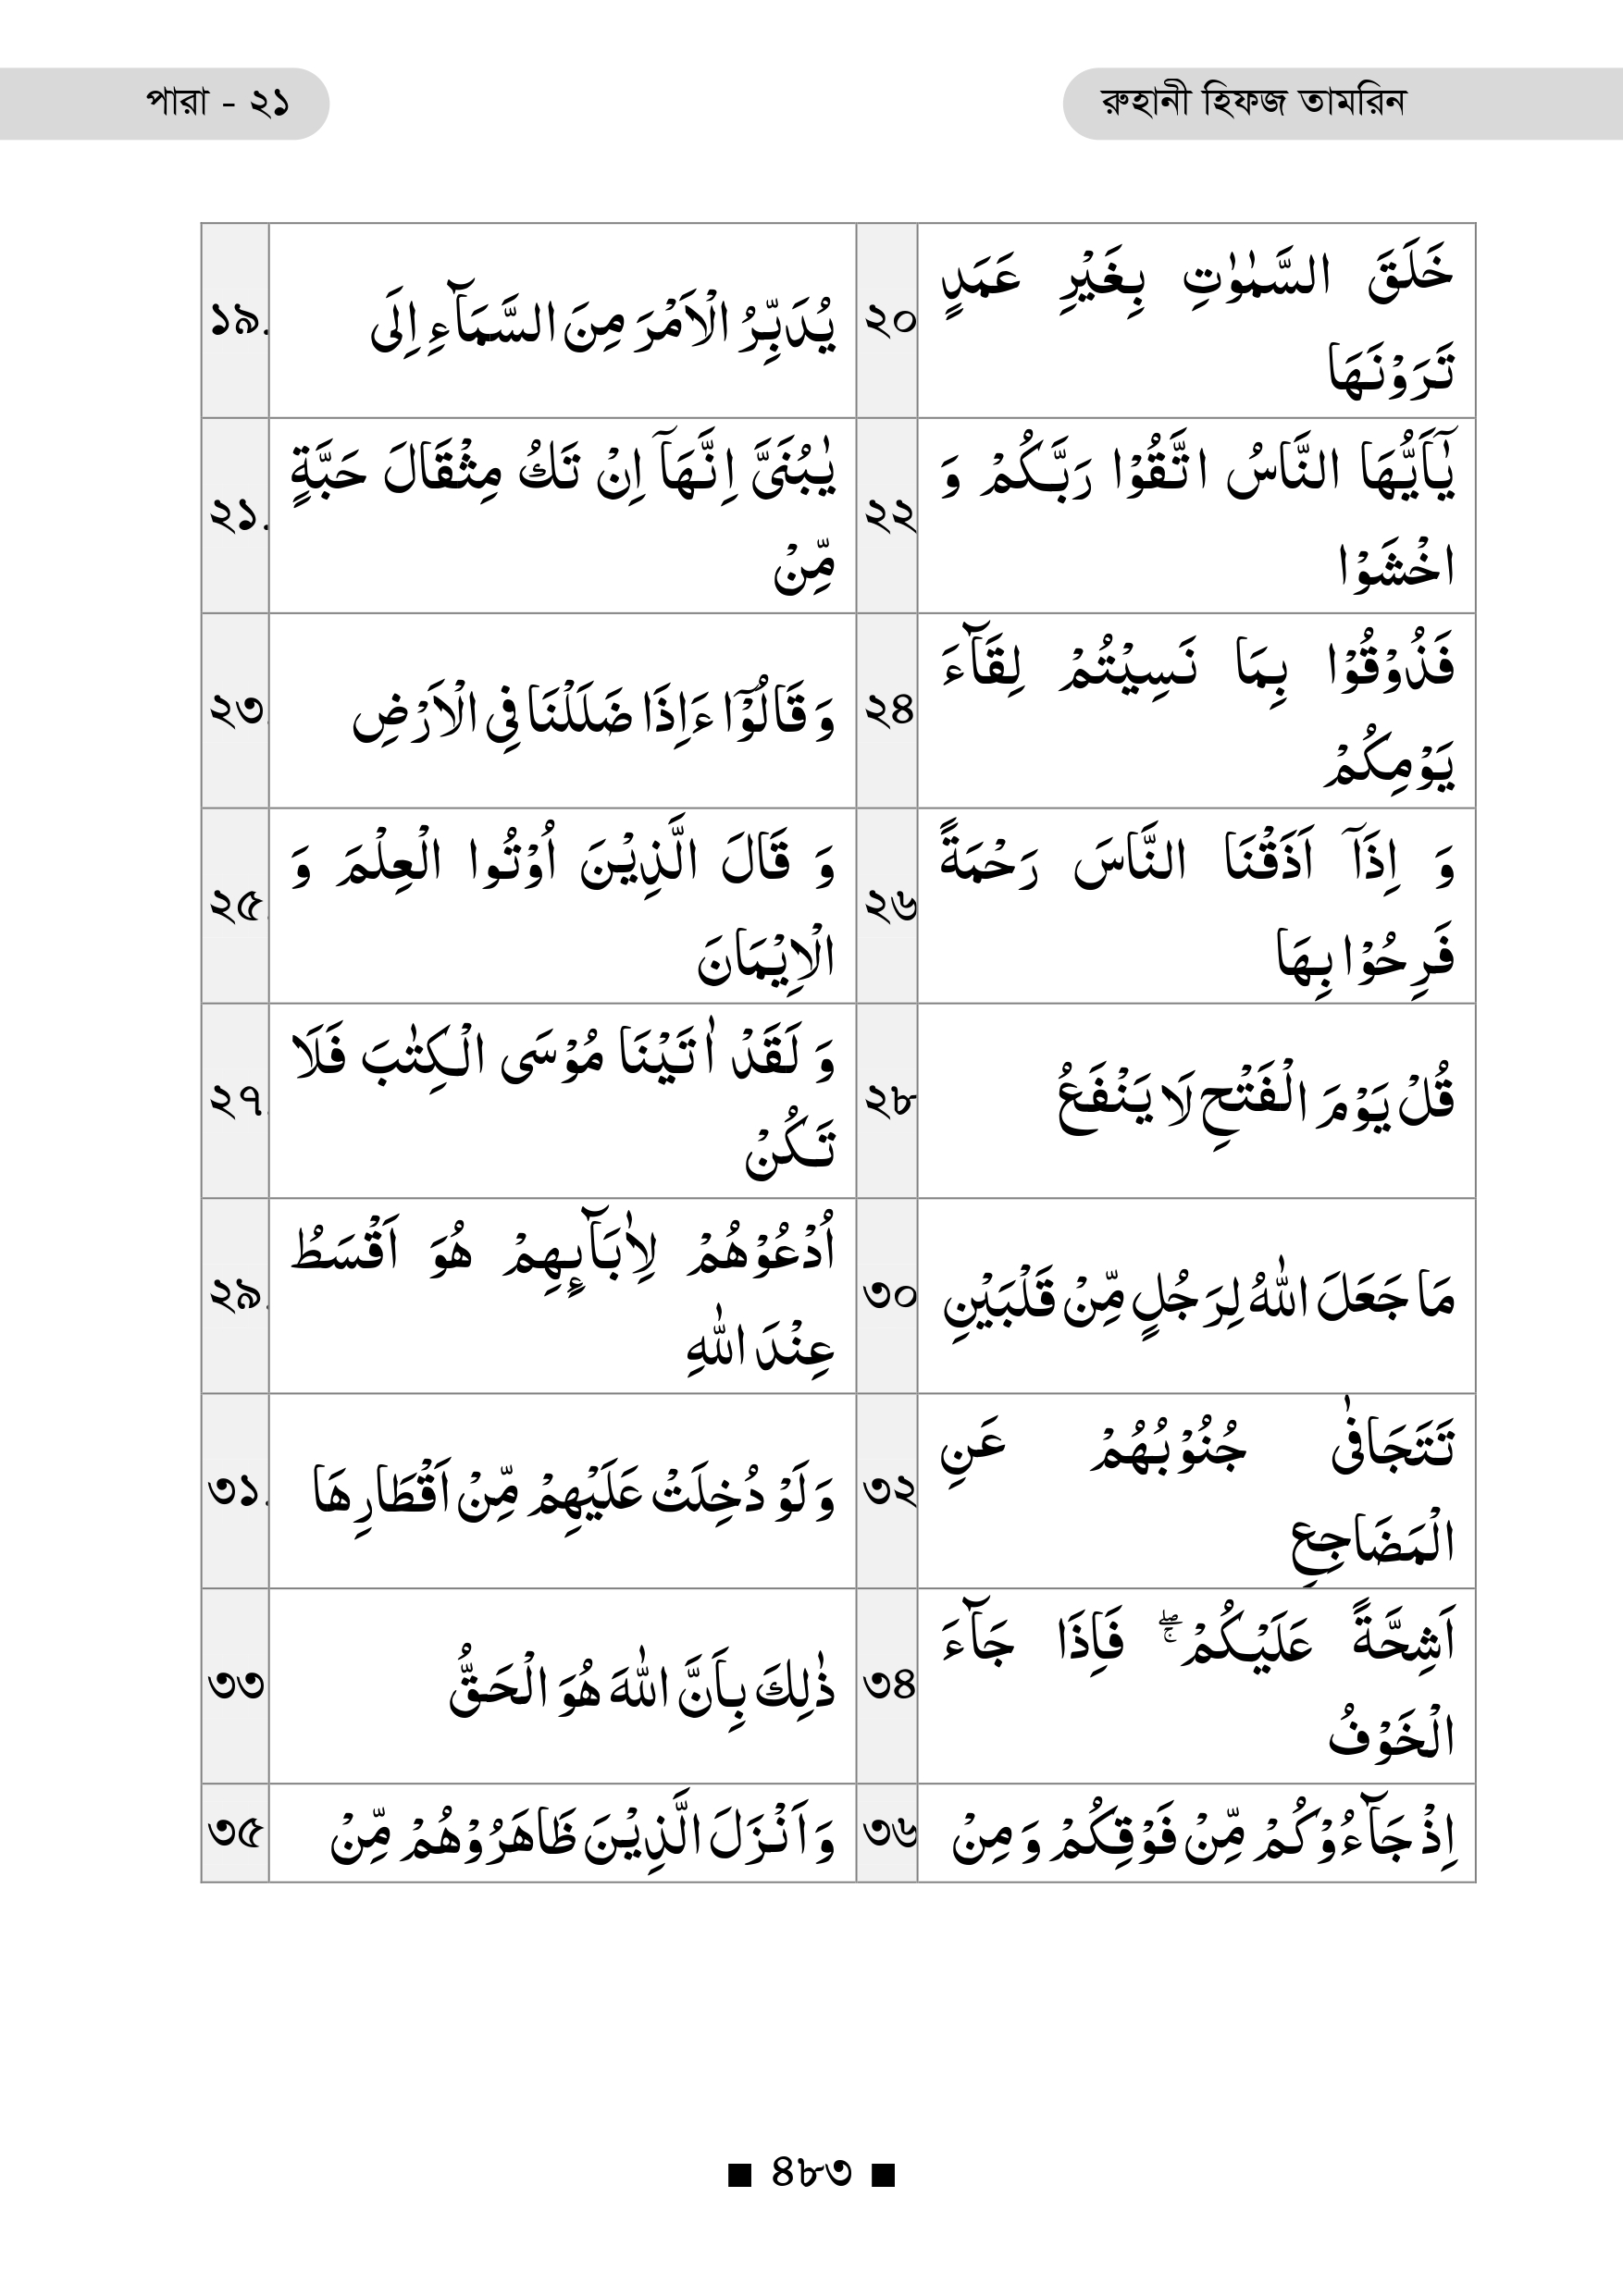 পারা - ২১
রুহানী হিফজ তামরিন
১৯.
يُدَبِّرُ الْاَمْرَ مِنَ السَّمَآءِ اِلَى
২০
خَلَقَ السَّمٰوٰتِ بِغَيْرِ عَمَدٍ
تَرَوْنَهَا
২১.
يٰبُنَىَّ اِنَّهَاۤ اِنْ تَكُ مِثْقَالَ حَبَّةٍ
مِّنْ
২২
يٰۤاَيُّهَا النَّاسُ اتَّقُوْا رَبَّكُمْ وَ
اخْشَوْا
২৩.
وَ قَالُوْۤا ءَاِذَا ضَلَلْنَا فِى الْاَرْضِ
২৪
فَذُوْقُوْا بِمَا نَسِيْتُمْ لِقَآءَ
يَوْمِكُمْ
২৫.
وَ قَالَ الَّذِيْنَ اُوْتُوا الْعِلْمَ وَ
الْاِيْمَانَ
২৬
وَ اِذَاۤ اَذَقْنَا النَّاسَ رَحْمَةً
فَرِحُوْا بِهَا
২৭.
وَ لَقَدْ اٰتَيْنَا مُوْسَى الْكِتٰبَ فَلَا
تَكُنْ
২৮
قُلْ يَوْمَ الْفَتْحِ لَا يَنْفَعُ
২৯.
اُدْعُوْهُمْ لِاٰبَآىِٕهِمْ هُوَ اَقْسَطُ
عِنْدَ اللّٰهِ
৩০
مَا جَعَلَ اللّٰهُ لِرَجُلٍ مِّنْ قَلْبَيْنِ
৩১.
وَ لَوْ دُخِلَتْ عَلَيْهِمْ مِّنْ اَقْطَارِهَا
৩২
تَتَجَافٰى جُنُوْبُهُمْ عَنِ
الْمَضَاجِعِ
৩৩
ذٰلِكَ بِاَنَّ اللّٰهَ هُوَ الْحَقُّ
৩৪
اَشِحَّةً عَلَيْكُمْ ۖۚ فَاِذَا جَآءَ
الْخَوْفُ
৩৫
وَ اَنْزَلَ الَّذِيْنَ ظَاهَرُوْهُمْ مِّنْ
৩৬
اِذْ جَآءُوْكُمْ مِّنْ فَوْقِكُمْ وَ مِنْ
■ ৪৮৩ ■